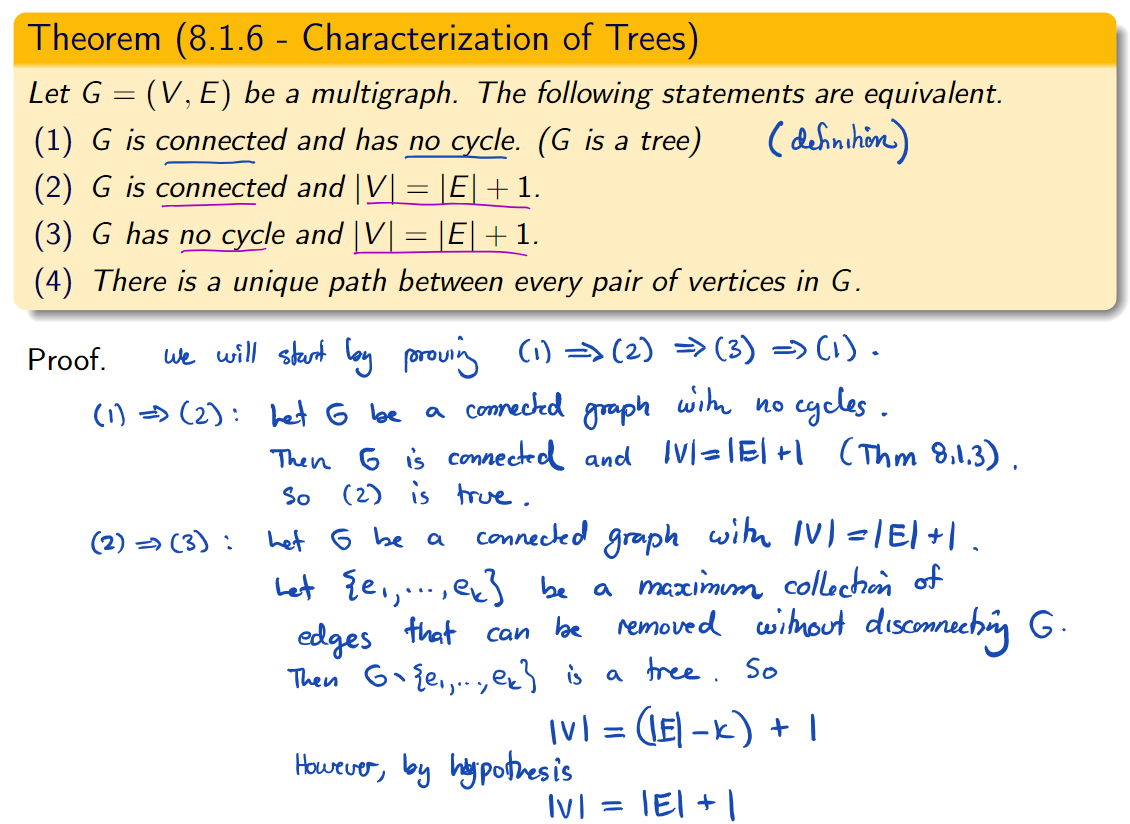 Theorem (8.1.6 - Characterization of Trees)
Let G = (V, E) be a multigraph. The following statements are equivalent.
(1) G is connected and has no cycle. (G is a tree) (definition)
(2) G is connected and |V| = |E| + 1.
(3) G has no cycle and |V| = |E| + 1.
(4) There is a unique path between every pair of vertices in G.
Proof. We will start by proving (1) ⇒ (2) ⇒ (3) ⇒ (1).
(1) ⇒ (2): Let G be a connected graph with no cycles.
Then G is connected and |V|=|E|+1 (Thm 8.1.3).
So (2) is true.
(2) ⇒ (3): Let G be a connected graph with |V|=|E|+1.
Let {e₁,...,eₖ} be a maximum collection of
edges that can be removed without disconnecting G.
Then G∖{e₁,...,eₖ} is a tree. So
|V| = (|E|-k) + 1
However, by hypothesis
|V| = |E| + 1